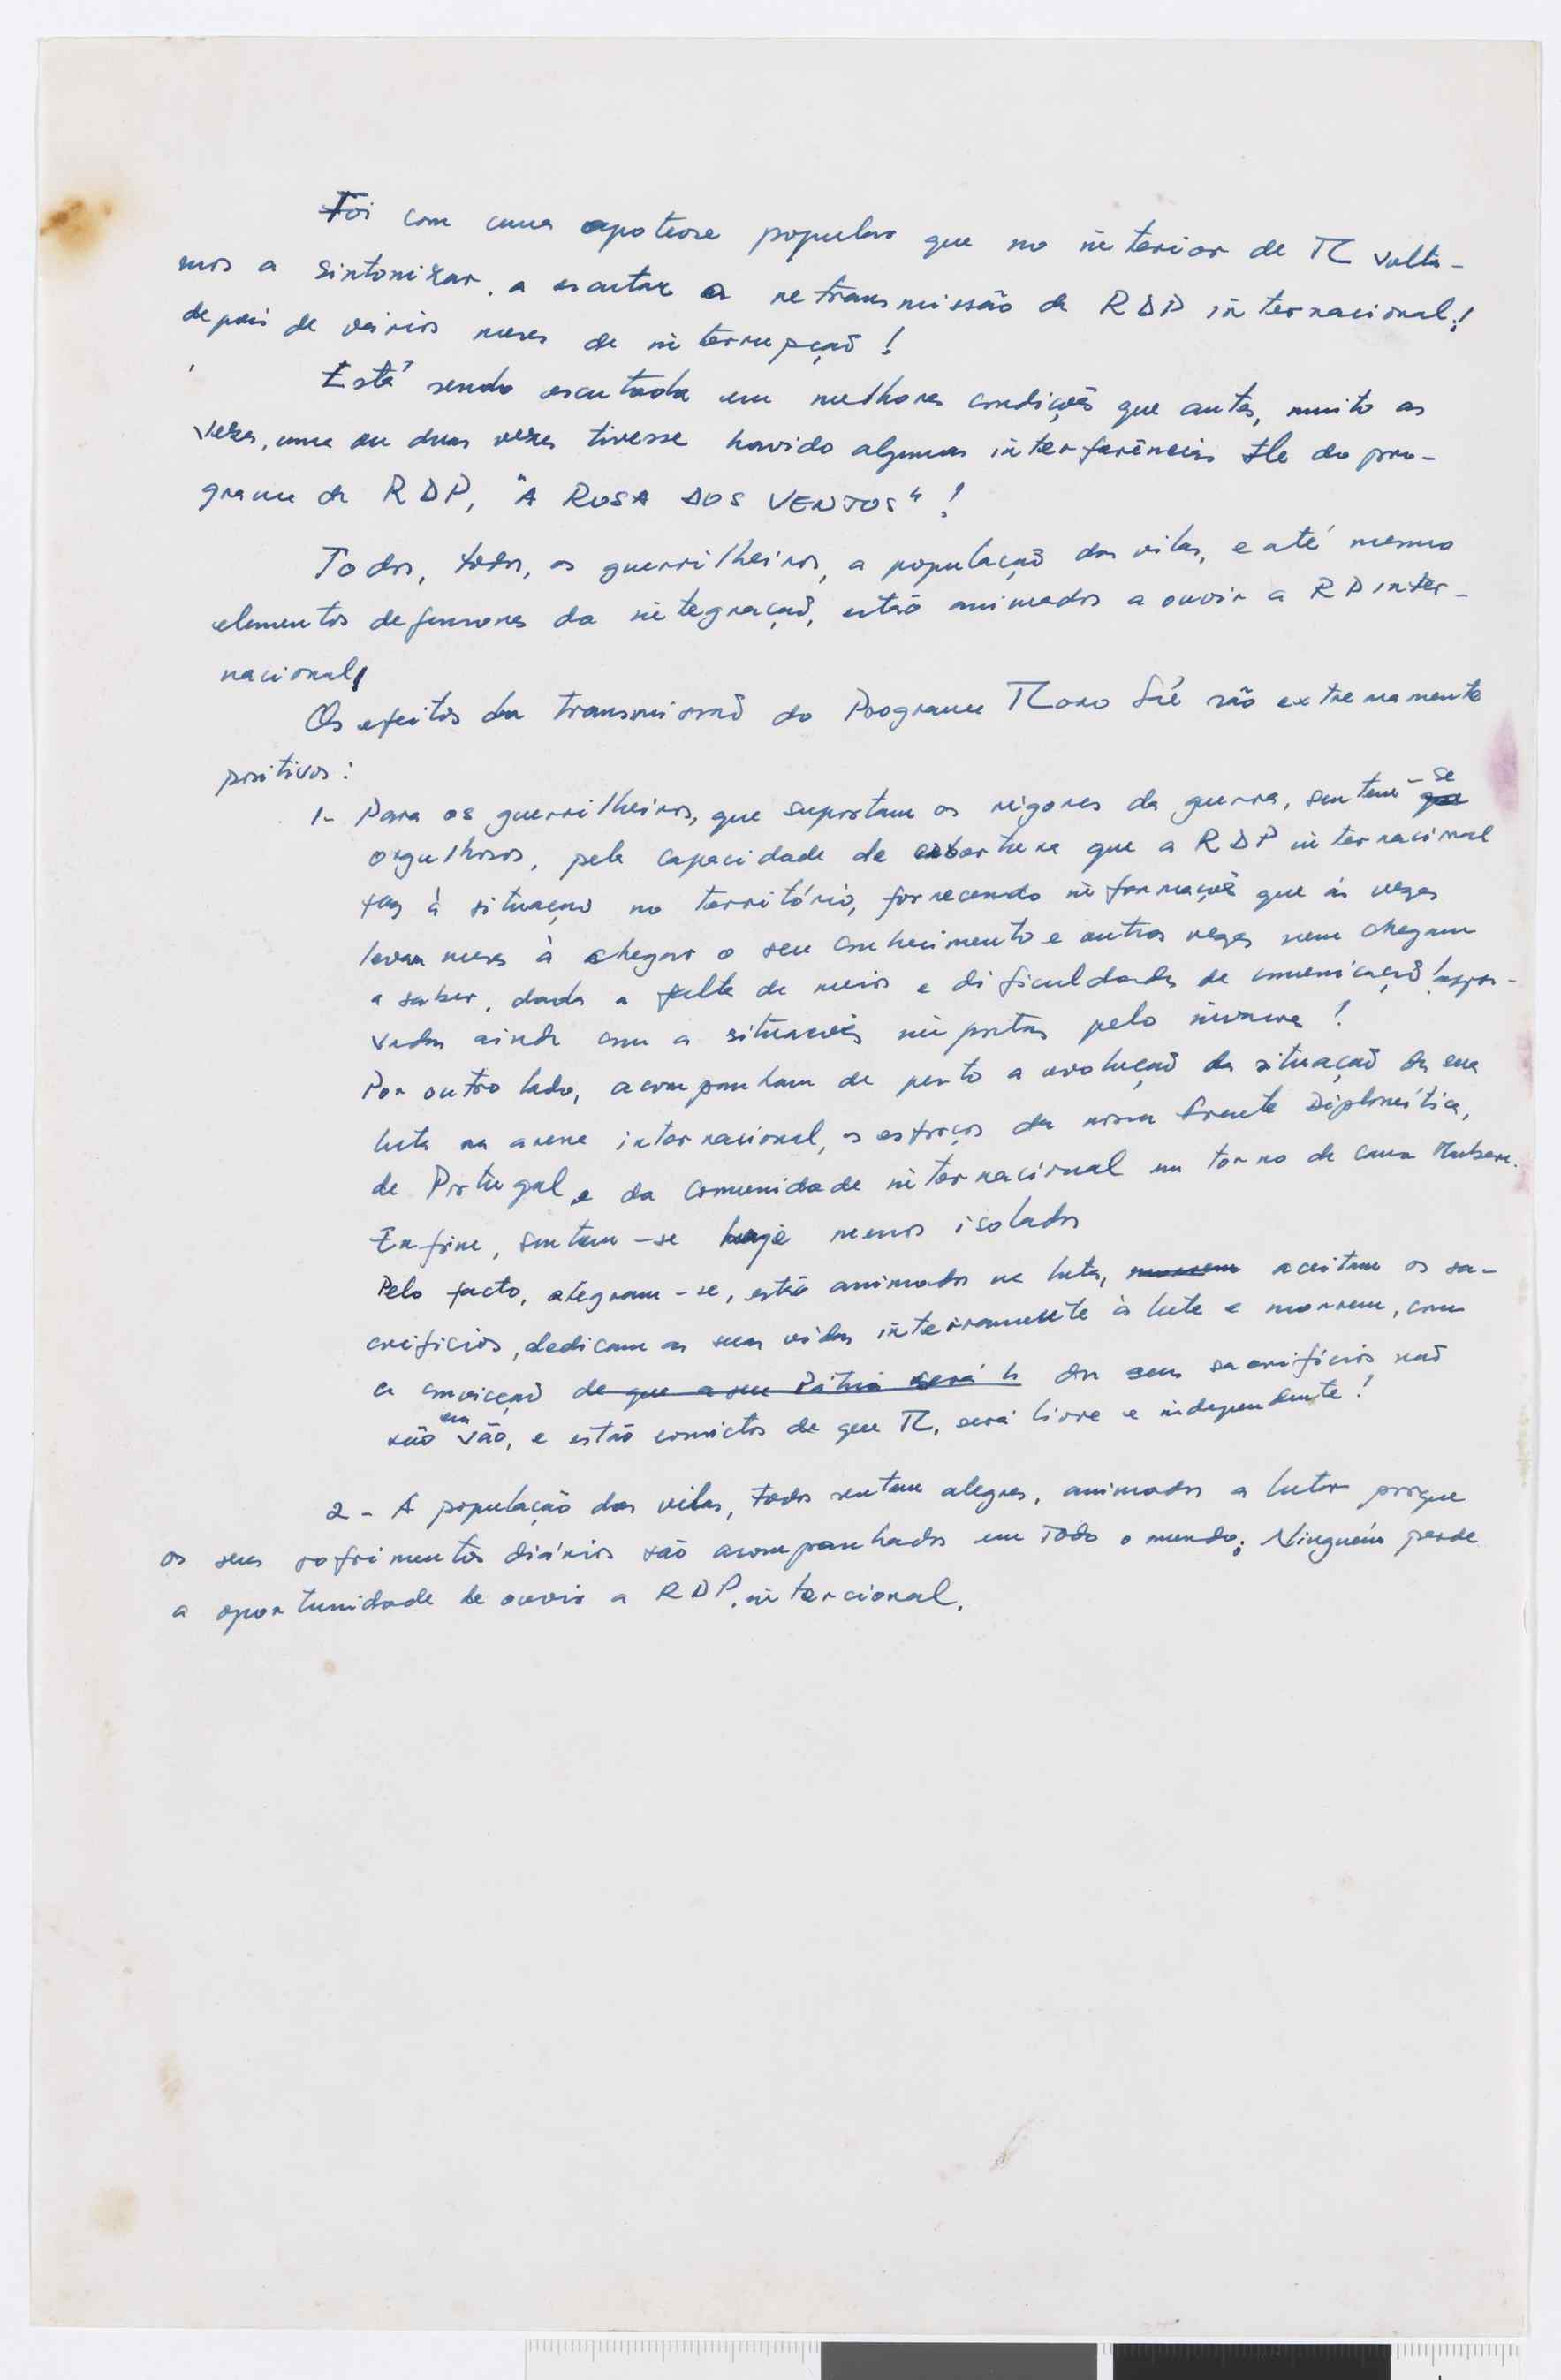 Foi com uma apoteose popular que no interior de TL volta-
mos a sintonizar, a escutar a retransmissão da RDP internacional!
depois de vários meses de interrupção!
Está sendo escutada em melhores condições que antes, muito as
vezes, uma ou duas vezes tivesse havido algumas interferências do pro-
grama da RDP, "A ROSA DOS VENTOS"!
Todos, todos, os guerrilheiros, a população das vilas, e até mesmo
elementos defensores da integração, estão animados a ouvir a RD inter-
nacional!
Os efeitos da transmissão do Programa Loro Sá'e são extremamente
positivos:
1- Para os guerrilheiros, que suportam os rigores da guerra, sentem-se
orgulhosos, pela capacidade de cobertura que a RDP internacional
faz à situação no território, fornecendo informações que às vezes
levam meses à chegar o seu conhecimento e outras vezes nem chegam
a saber, dada a falta de meios e dificuldades de comunicação! agra-
vadas ainda com a situações impostas pelo invasor!
Por outro lado, acompanham de perto a evolução da situação da sua
luta na arena internacional, os esforços da nossa Frente Diplomática,
de Portugal e da Comunidade internacional em torno da causa Maubere.
Enfim, sentem-se hoje menos isolados
Pelo facto, alegram-se, estão animados na luta, aceitam os sa-
crifícios, dedicam as suas vidas inteiramente à luta e morrem, com
a convicção de que a sua Pátria será li dos seus sacrifícios não
são em vão, e estão convictos de que TL, será livre e independente!
2- A população das vilas, todos sentem alegres, animados a lutar porque
os seus sofrimentos diários são acompanhados em todo o mundo; Ninguém perde
a oportunidade de ouvir a RDP, intercional.